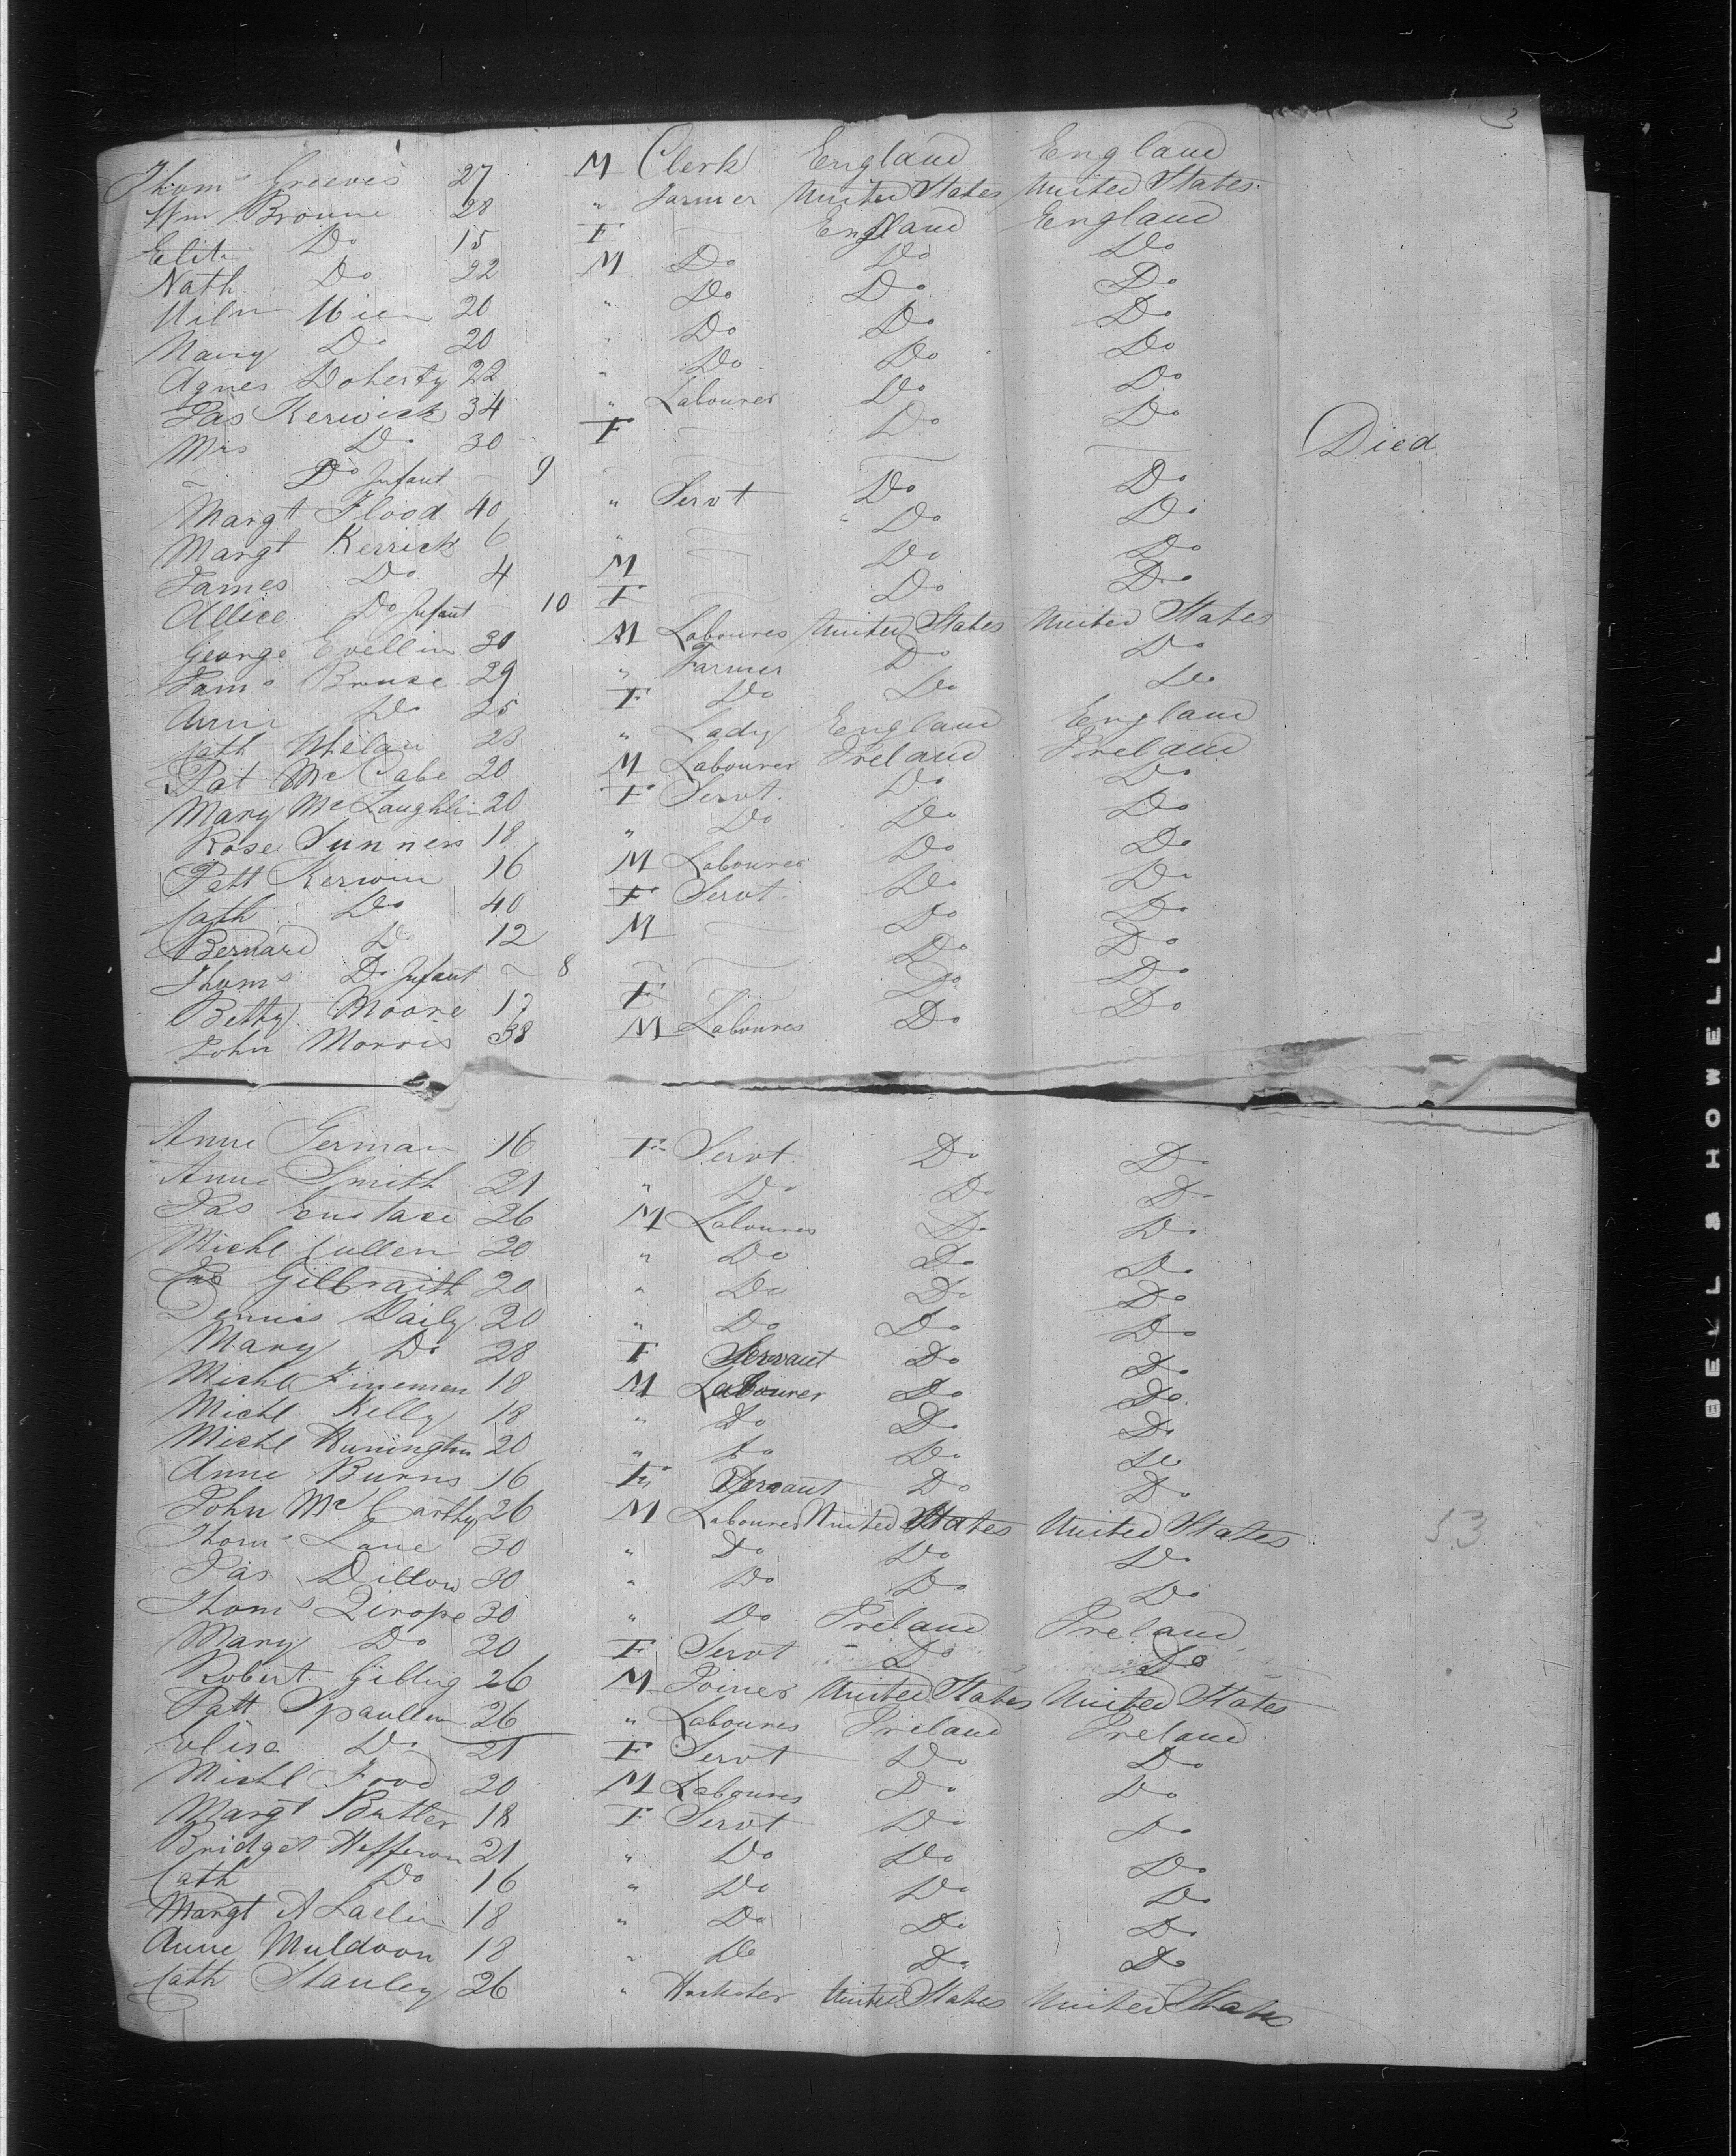 3
Thoms Greeves 27 M Clerk England England
Wm Browne 28 " Farmer United States United States
Eliz Do 15 F — England England
Nath Do 22 M Do Do Do
20 " Do Do Do
Nancy Do 20 " Do Do Do
Agnes Doherty 22 " Do Do Do
Jas Kerwick 34 " Labourer Do Do
Mrs Do 30 F — Do Do
~ Do Infant — 9 — — — — Died
Margt Flood 40 " Servt Do Do
Margt Kerrick 6 " — Do Do
James Do 4 M — Do Do
Allice Do Infant — 10 F — Do Do
George Evellin 30 M Labourer United States United States
Jams Bruse 29 " Farmer Do Do
Anne Do 25 F Do Do Do
Cath Whelan 23 " Lady England England
Pat McCabe 20 M Labourer Ireland Ireland
Mary McLaughlin 20 F Servt. Do Do
Rose Sunners 18 " Do Do Do
Patt Kerwin 16 M Labourer Do Do
Cath Do 40 F Servt. Do Do
Bernard Do 12 M — Do Do
Thoms Do Infant ~ 8 ~ — Do Do
Betty Moore 17 F — Do Do
John Morris 38 M Labourer Do Do
Anne German 16 F Servt. Do Do
Anne Smith 21 " Do Do Do
Jas Eustace 26 M Labourer Do Do
Michl Cullen 20 " Do Do Do
Jas Gilbraith 20 " Do Do Do
Dennis Daily 20 " Do Do Do
Mary Do 28 F Servant Do Do
Michl Finemen 18 M Labourer Do Do
Michl Kelly 18 " Do Do Do
Michl Hunington 20 " Do Do Do
Anne Burns 16 F Servant Do Do
John McCarthy 26 M Labourer United States United States
53
Thoms Lane 30 " Do Do Do
Jas Dillon 30 " Do Do Do
Thoms 30 " Do Ireland Ireland
Mary Do 20 F Servt Do Do
Robert 26 M Joiner United States United States
Patt Spaullen 26 " Labourer Ireland Ireland
Elisa Do 21 F Servt Do Do
Michl Food 20 M Labourer Do Do
Margt Butler 18 F Servt Do Do
Bridget Hefferon 21 " Do Do Do
Cath Do 16 " Do Do Do
Margt 18 " Do Do Do
Anne Muldoon 18 " Do Do Do
Cath Stanley 26 " United States United States
BELL & HOWELL